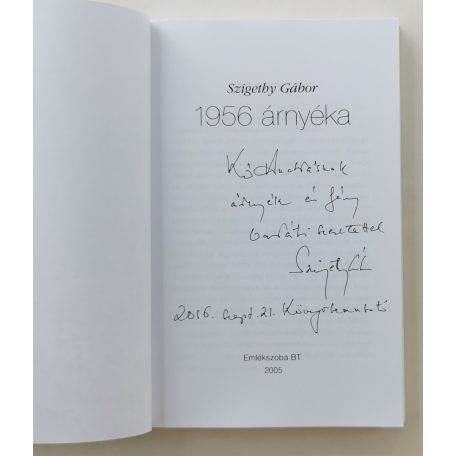 Szigethy Gábor
1956 árnyéka
Kő Andrásnak
árnyék és fény
baráti szeretettel
Szigethy Gábor
2016. szept. 21. Könyvbemutató
Emlékszoba BT.
2005